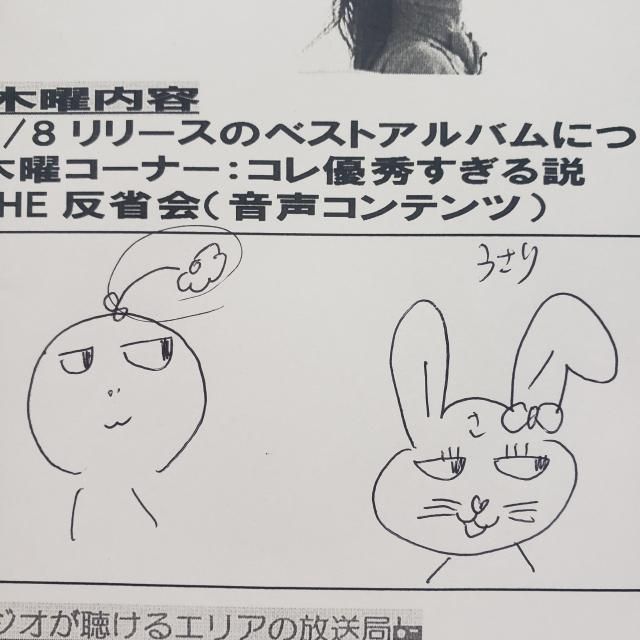 木曜内容
/8 リリースのベストアルバムにつ
木曜コーナー:コレ優秀すぎる説
HE 反省会(音声コンテンツ)
うさり
さ
ジオが聴けるエリアの放送局